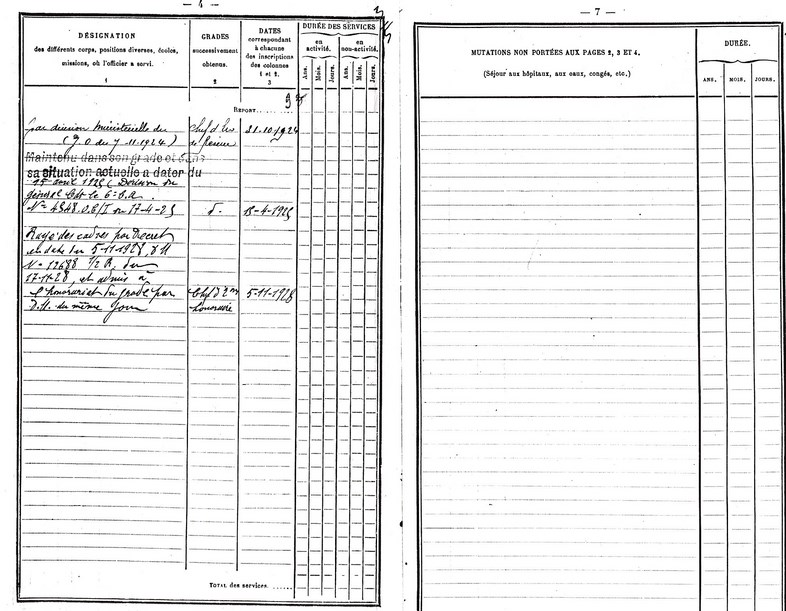 DÉSIGNATION
des différents corps, positions diverses, écoles,
missions, où l'officier a servi.
1
GRADES
successivement
obtenus.
2
DATES
correspondant
à chacune
des inscriptions
des colonnes
1 et 2.
3
DURÉE DES SERVICES
en
activité.
en
non-activité.
Ans.
Mois.
Jours.
Ans.
Mois.
Jours.
REPORT
par décision Ministérielle du
(J.O du 7-11-1924)
Chef d'
de réserve
31-10-1924
Maintenu dans son grade et dans
sa situation actuelle a dater du
15 avril 1925 (Décision du
général Cdt le 6e
N° 4548
17-4-25
d°
15-4-1925
Rayé des cadres par Décret
en date du 5-11-1928, D.M
N° 12688 1/2 R, du
17-11-28, et admis à
l'honorariat du grade par
D.M. du même jour
Chef d'
honoraire
5-11-1928
TOTAL des services.
— 7 —
MUTATIONS NON PORTÉES AUX PAGES 2, 3 ET 4.
(Séjour aux hôpitaux, aux eaux, congés, etc.)
DURÉE.
ANS.
MOIS.
JOURS.